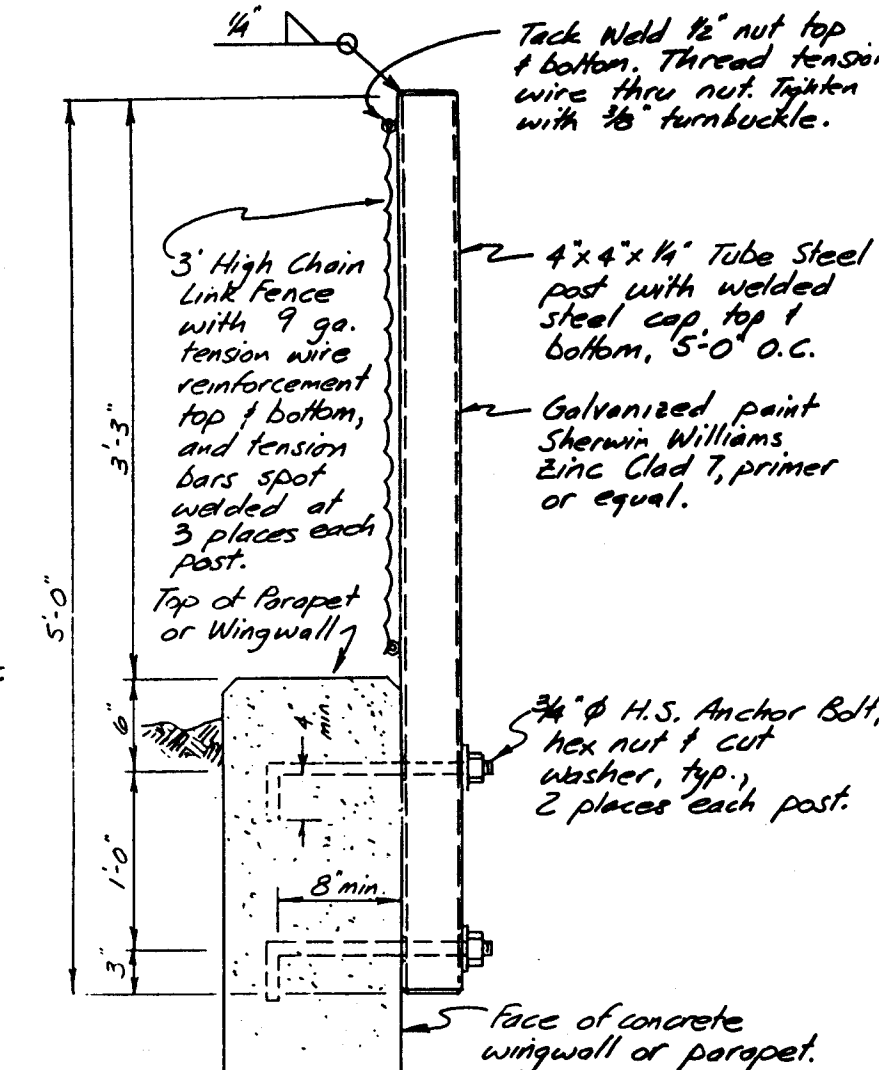 1/4"
Tack Weld 1/2" nut top
& bottom. Thread tension
wire thru nut. Tighten
with 3/8" turnbuckle.
3' High Chain
Link Fence
with 9 ga.
tension wire
reinforcement
top & bottom,
and tension
bars spot
welded at
3 places each
post.
4"x 4"x 1/4" Tube Steel
post with welded
steel cap top &
bottom, 5'-0" O.C.
Galvanized paint
Sherwin Williams
Zinc Clad 7, primer
or equal.
3'-3"
5'-0"
Top of Parapet
or Wingwall
6"
4"
min.
3/4" φ H.S. Anchor Bolt,
hex nut & cut
washer, typ.,
2 places each post.
1'-0"
8" min.
3"
Face of concrete
wingwall or parapet.